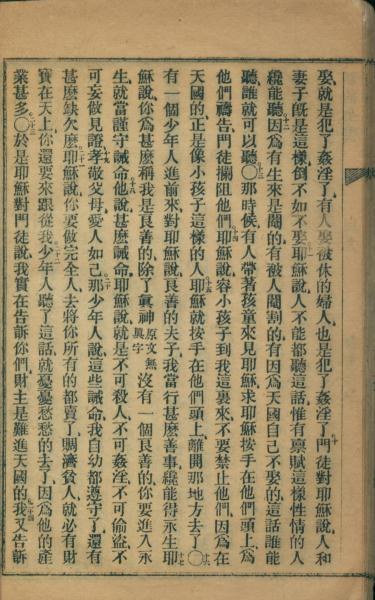 娶就是犯了姦淫了有人娶被休的婦人也是犯了姦淫了十門徒對耶穌說人和
妻子旣是這樣倒不如不娶十一耶穌說人不能都聽這話惟有禀賦這樣性情的人
纔能聽十二因爲有生來是閹的有被人閹割的有因爲天國自己不娶的這話誰能
聽誰就可以聽〇十三那時候有人帶著孩童來見耶穌求耶穌按手在他們頭上爲
他們禱告門徒攔阻他們十四耶穌說容小孩子到我這裏來不要禁止他們因爲在
天國的正是像小孩子這樣的人十五耶穌就按手在他們頭上離開那地方去了〇十六
有一個少年人進前來對耶穌說良善的夫子我當行甚麽善事纔能得永生十七耶
穌說你爲甚麽稱我是良善的除了眞神原文無眞字沒有一個良善的你要進入永
生就當謹守誡命十八他說甚麽誡命耶穌說就是不可殺人不可姦淫不可偷盜不
可妄做見證十九孝敬父母愛人如己二十那少年人說這些誡命我自幼都遵守了還有
甚麽缺欠麽二十一耶穌說你要做完全人去將你所有的都賣了賙濟貧人就必有財
寶在天上你還要來跟從我二十二少年人聽了這話就憂憂愁愁的去了因爲他的產
業甚多〇二十三於是耶穌對門徒說我實在告訴你們財主是難進天國的二十四我又告訴